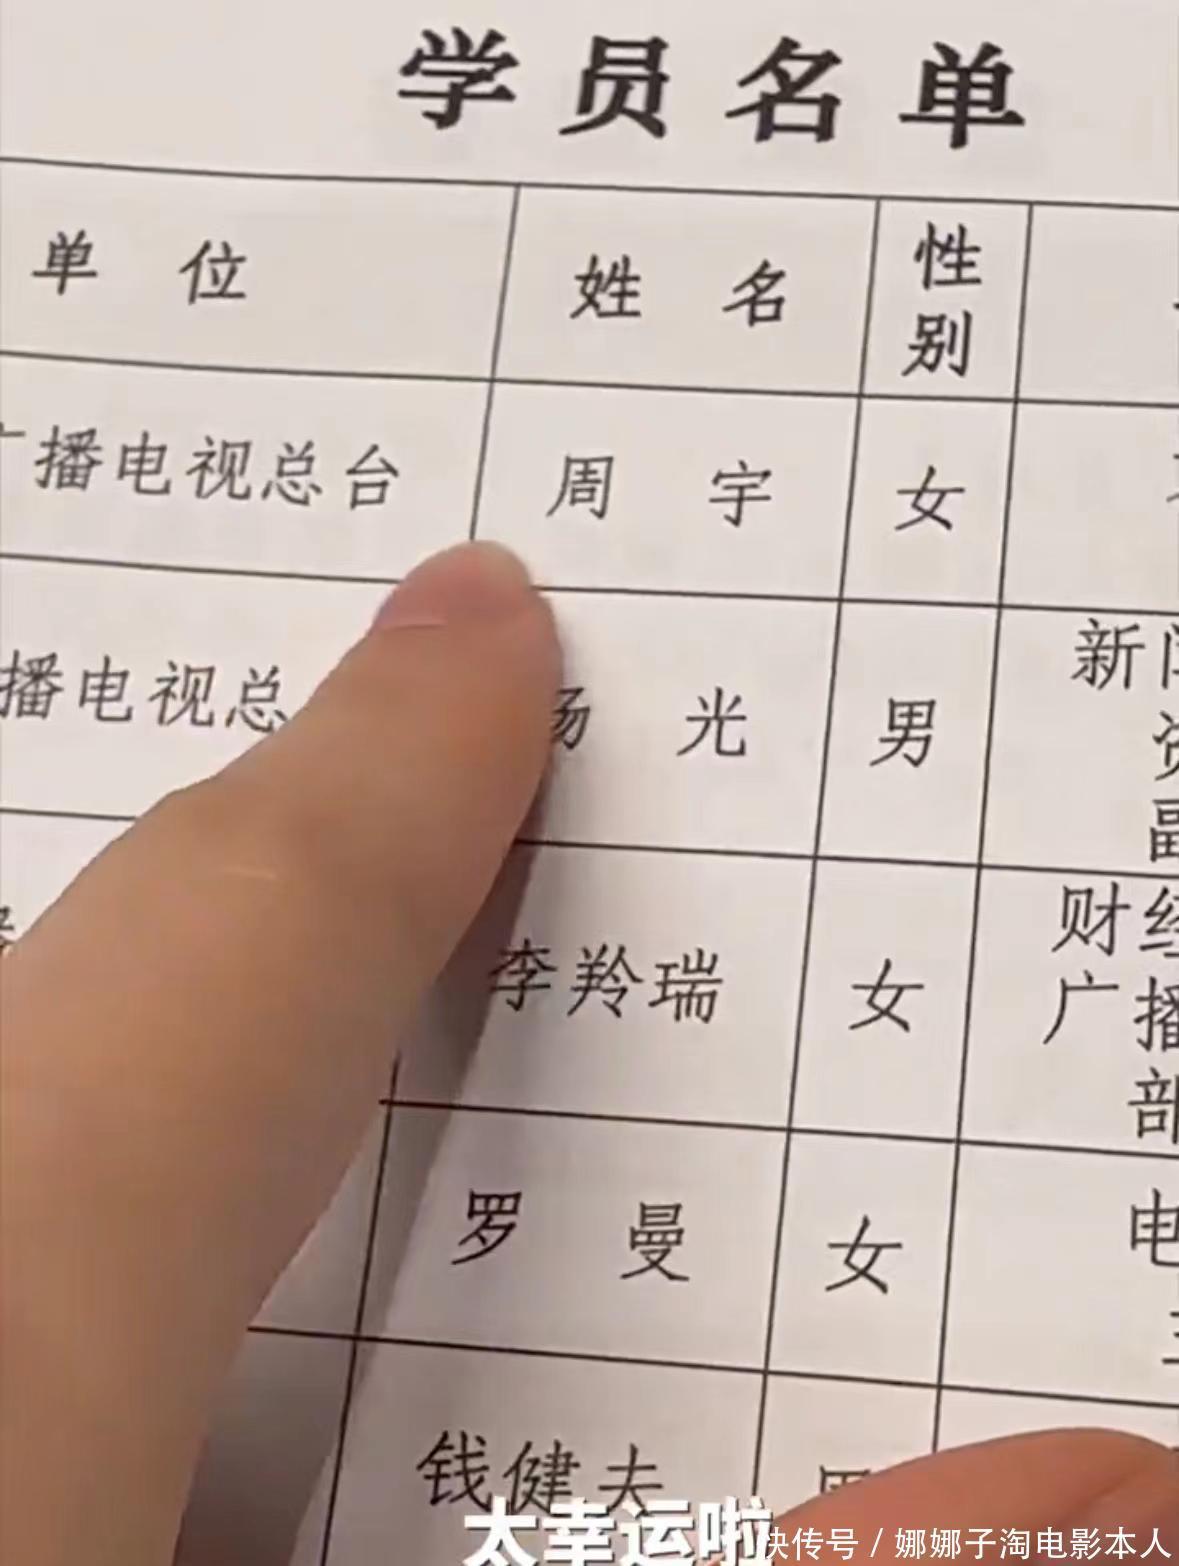 学员名单
单位 姓名 性别
广播电视总台 周宇 女
播电视总 杨光 男 新闻
副
李羚瑞 女 财经
广播
部
罗曼 女 电
钱健夫 男
太幸运啦
快传号 / 娜娜子淘电影本人